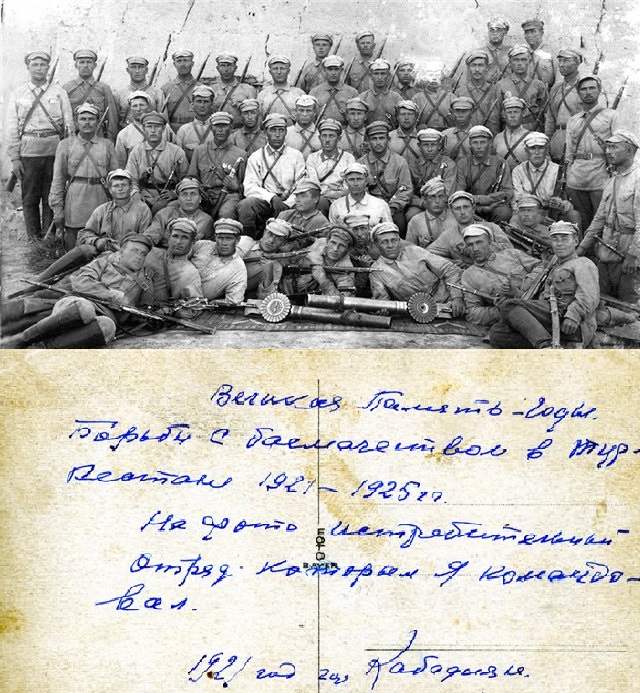 Великая Память - Годы.
Борьбы с басмачеством в Тур-
кестане 1921 - 1925 гг.
На фото истребительный
отряд. которым я командо-
вал.
1921 год гор. Кабадиян.